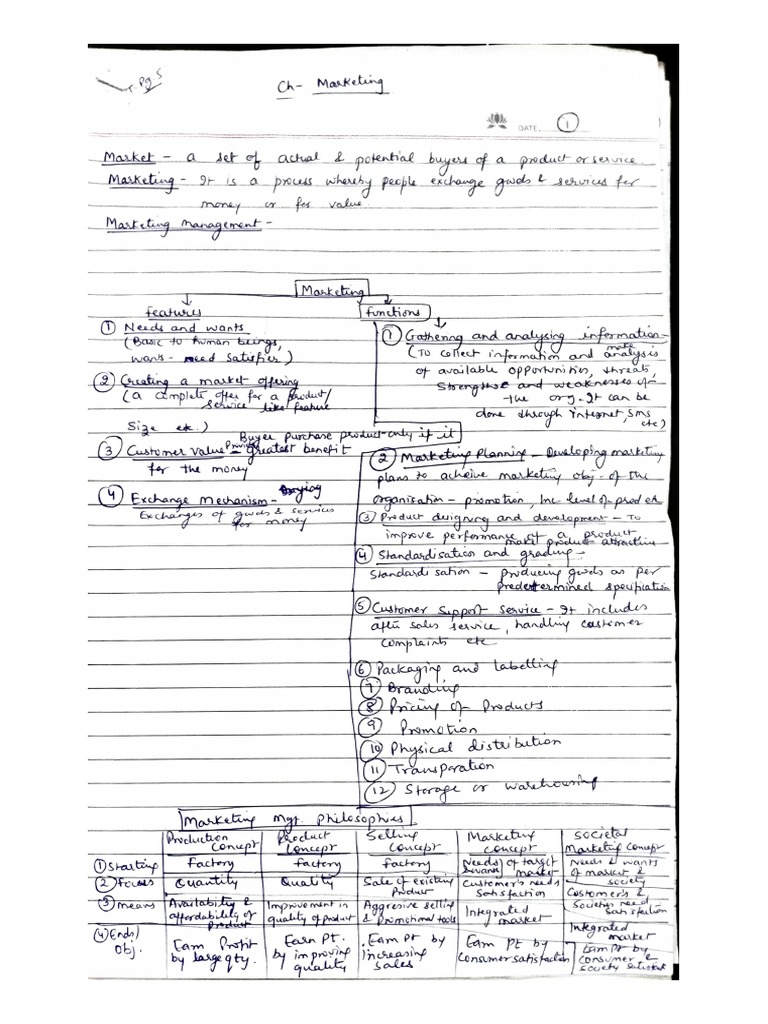 T. Pg 5
Ch- Marketing
DATE. 1
Market - a set of actual & potential buyers of a product or service.
Marketing - It is a process whereby people exchange goods & services for
money or for value.
Marketing management -
Marketing
features
① Needs and wants
(Basic to human beings,
wants - need satisfier)
② Creating a market offering
(a complete offer for a product/
service like feature
Size etc.)
③ Customer value - Buyer purchase product only if it
Provides greatest benefit
for the money
④ Exchange Mechanism -
Exchanges of goods & services
for money
functions
① Gathering and analysing information -
(To collect information and make analysis
of available opportunities, threats,
Strengths and weaknesses of
the org. It can be
done through internet, sms
etc)
② Marketing Planning - Developing marketing
plans to acheive marketing obj. of the
organisation - promotion, Inc level of prod etc
③ Product designing and development - To
improve performance of a product
make product attractive
④ Standardisation and grading -
Standardisation - producing goods as per
predetermined specification
⑤ Customer Support Service - It includes
after sales service, handling customer
complaints etc
⑥ Packaging and labelling
⑦ Branding
⑧ Pricing of Products
⑨ Promotion
⑩ Physical distribution
⑪ Transporation
⑫ Storage or warehousing
Marketing Mgt. Philosophies
Production Concept | Product Concept | Selling Concept | Marketing concept | Societal Marketing concept
① Starting | factory | factory | factory | Needs of target market | Needs & wants of market & society
② focus | Quantity | Quality | Sale of existing Product | Customer's needs satisfaction | Customer's & Societies need satisfaction
③ means | Availability & affordability of product | Improvement in quality of product | Aggresive selling & Promotional tools | Integrated market | Integrated market
④ Ends/Obj. | Earn Profit by large qty. | Earn Pt. by improving quality | Earn Pt by increasing sales | Earn Pt by consumer satisfaction | Earn Pt by consumer & society satisfact